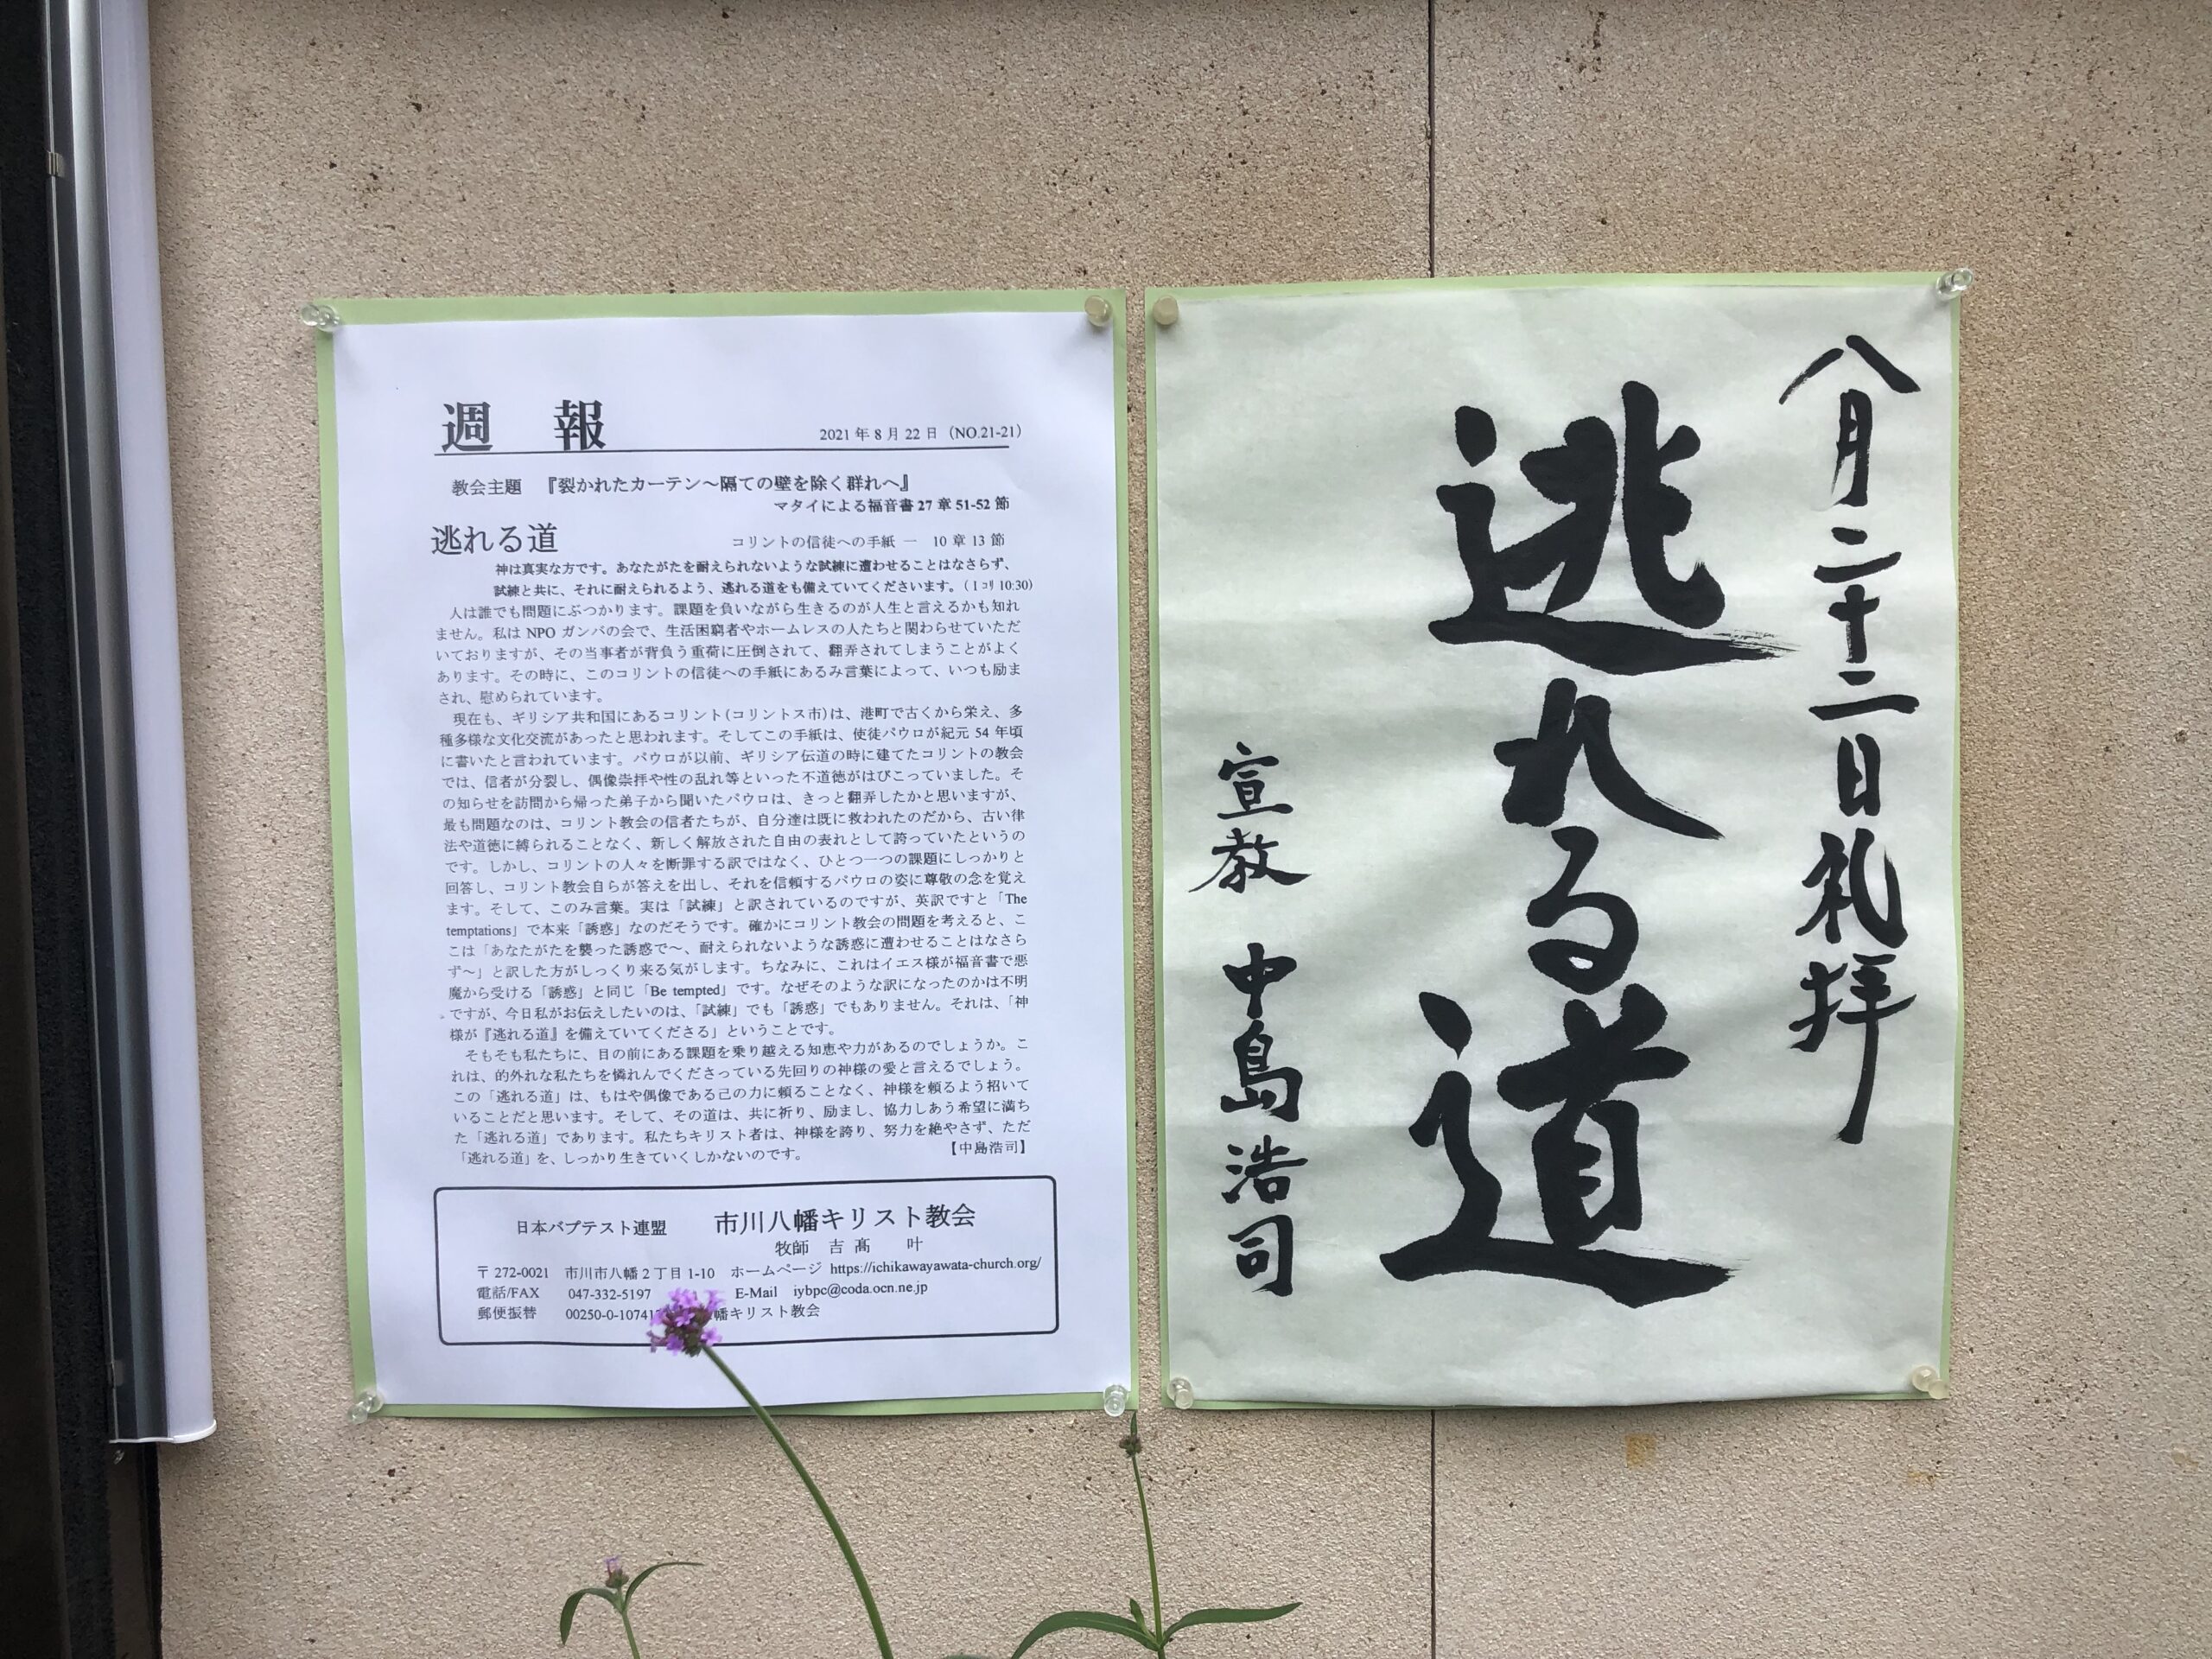 週 報
2021年8月22日（NO.21-21）
教会主題 『裂かれたカーテン～隔ての壁を除く群れへ』
マタイによる福音書27章51-52節
逃れる道
コリントの信徒への手紙 一 10章13節
神は真実な方です。あなたがたを耐えられないような試練に遭わせることはなさらず、
試練と共に、それに耐えられるよう、逃れる道をも備えていてくださいます。（Ⅰコリ10:30）
人は誰でも問題にぶつかります。課題を負いながら生きるのが人生と言えるかも知れ
ません。私はNPOガンバの会で、生活困窮者やホームレスの人たちと関わらせていただ
いておりますが、その当事者が背負う重荷に圧倒されて、翻弄されてしまうことがよく
あります。その時に、このコリントの信徒への手紙にあるみ言葉によって、いつも励ま
され、慰められています。
現在も、ギリシア共和国にあるコリント（コリントス市）は、港町で古くから栄え、多
種多様な文化交流があったと思われます。そしてこの手紙は、使徒パウロが紀元54年頃
に書いたと言われています。パウロが以前、ギリシア伝道の時に建てたコリントの教会
では、信者が分裂し、偶像崇拝や性の乱れ等といった不道徳がはびこっていました。そ
の知らせを訪問から帰った弟子から聞いたパウロは、きっと翻弄したかと思いますが、
最も問題なのは、コリント教会の信者たちが、自分達は既に救われたのだから、古い律
法や道徳に縛られることなく、新しく解放された自由の表れとして誇っていたというの
です。しかし、コリントの人々を断罪する訳ではなく、ひとつ一つの課題にしっかりと
回答し、コリント教会自らが答えを出し、それを信頼するパウロの姿に尊敬の念を覚え
ます。そして、このみ言葉。実は「試練」と訳されているのですが、英訳ですと「The
temptations」で本来「誘惑」なのだそうです。確かにコリント教会の問題を考えると、こ
こは「あなたがたを襲った誘惑で～、耐えられないような誘惑に遭わせることはなさら
ず～」と訳した方がしっくり来る気がします。ちなみに、これはイエス様が福音書で悪
魔から受ける「誘惑」と同じ「Be tempted」です。なぜそのような訳になったのかは不明
ですが、今日私がお伝えしたいのは、「試練」でも「誘惑」でもありません。それは、「神
様が『逃れる道』を備えていてくださる」ということです。
そもそも私たちに、目の前にある課題を乗り越える知恵や力があるのでしょうか。こ
れは、的外れな私たちを憐れんでくださっている先回りの神様の愛と言えるでしょう。
この「逃れる道」は、もはや偶像である己の力に頼ることなく、神様を頼るよう招いて
いることだと思います。そして、その道は、共に祈り、励まし、協力しあう希望に満ち
た「逃れる道」であります。私たちキリスト者は、神様を誇り、努力を絶やさず、ただ
「逃れる道」を、しっかり生きていくしかないのです。 【中島浩司】
日本バプテスト連盟 市川八幡キリスト教会
牧師 吉髙 叶
〒272-0021 市川市八幡2丁目1-10 ホームページ https://ichikawayawata-church.org/
電話/FAX 047-332-5197 E-Mail iybpc@coda.ocn.ne.jp
郵便振替 00250-0-1074 幡キリスト教会
八月二十二日礼拝
逃れる道
宣教 中島浩司